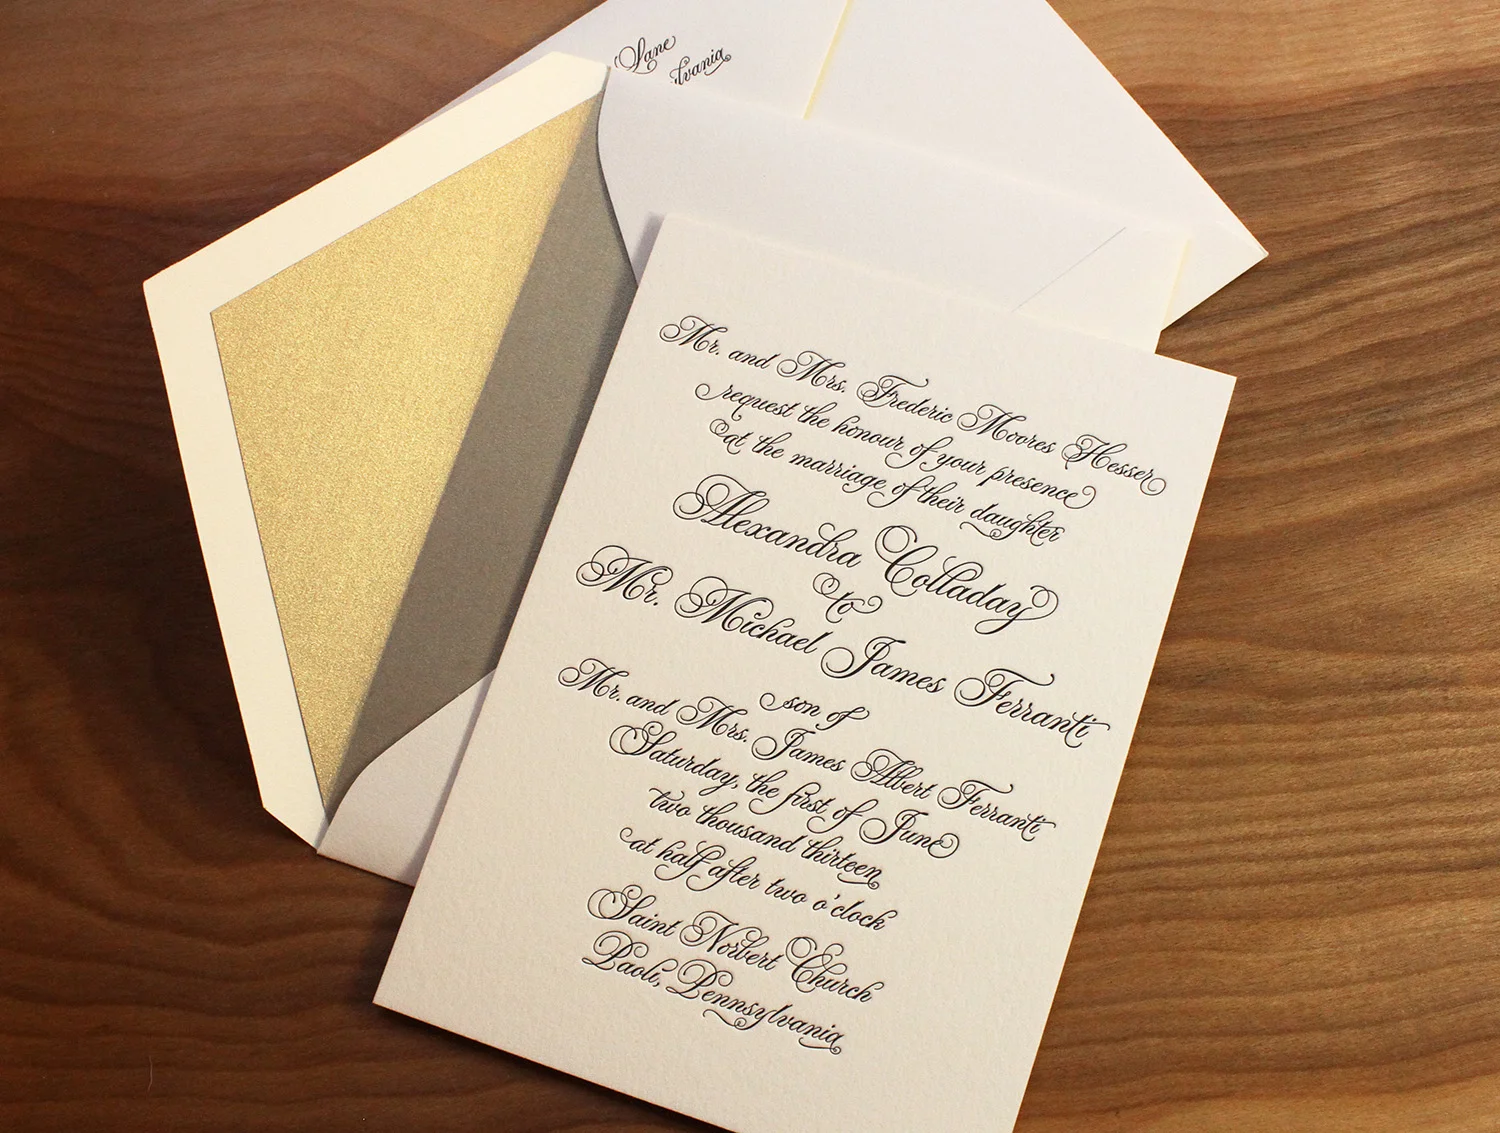 Lane
lvania
Mr. and Mrs. Frederic Moores Hesser
request the honour of your presence
at the marriage of their daughter
Alexandra Colladay
to
Mr. Michael James Ferranti
son of
Mr. and Mrs. James Albert Ferranti
Saturday, the first of June
two thousand thirteen
at half after two o'clock
Saint Norbert Church
Paoli, Pennsylvania